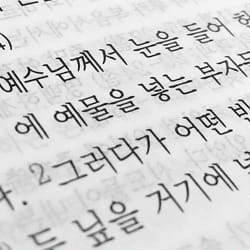 4)
예수님께서 눈을 들어
에 예물을 넣는 부자
. 2 그러다가 어떤
두 닢을 거기에